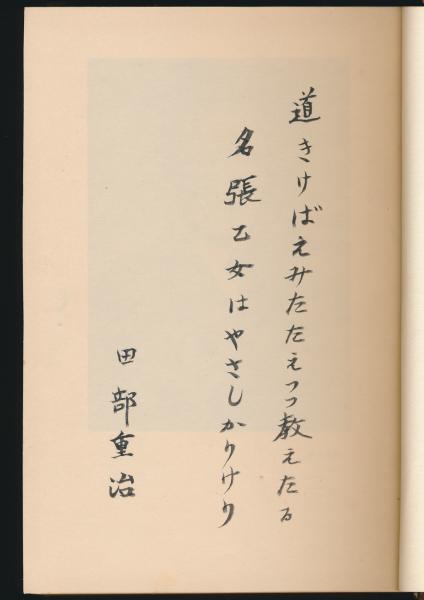 道きけばえみたたえつつ教えたる
名張乙女はやさしかりけり
田部重治